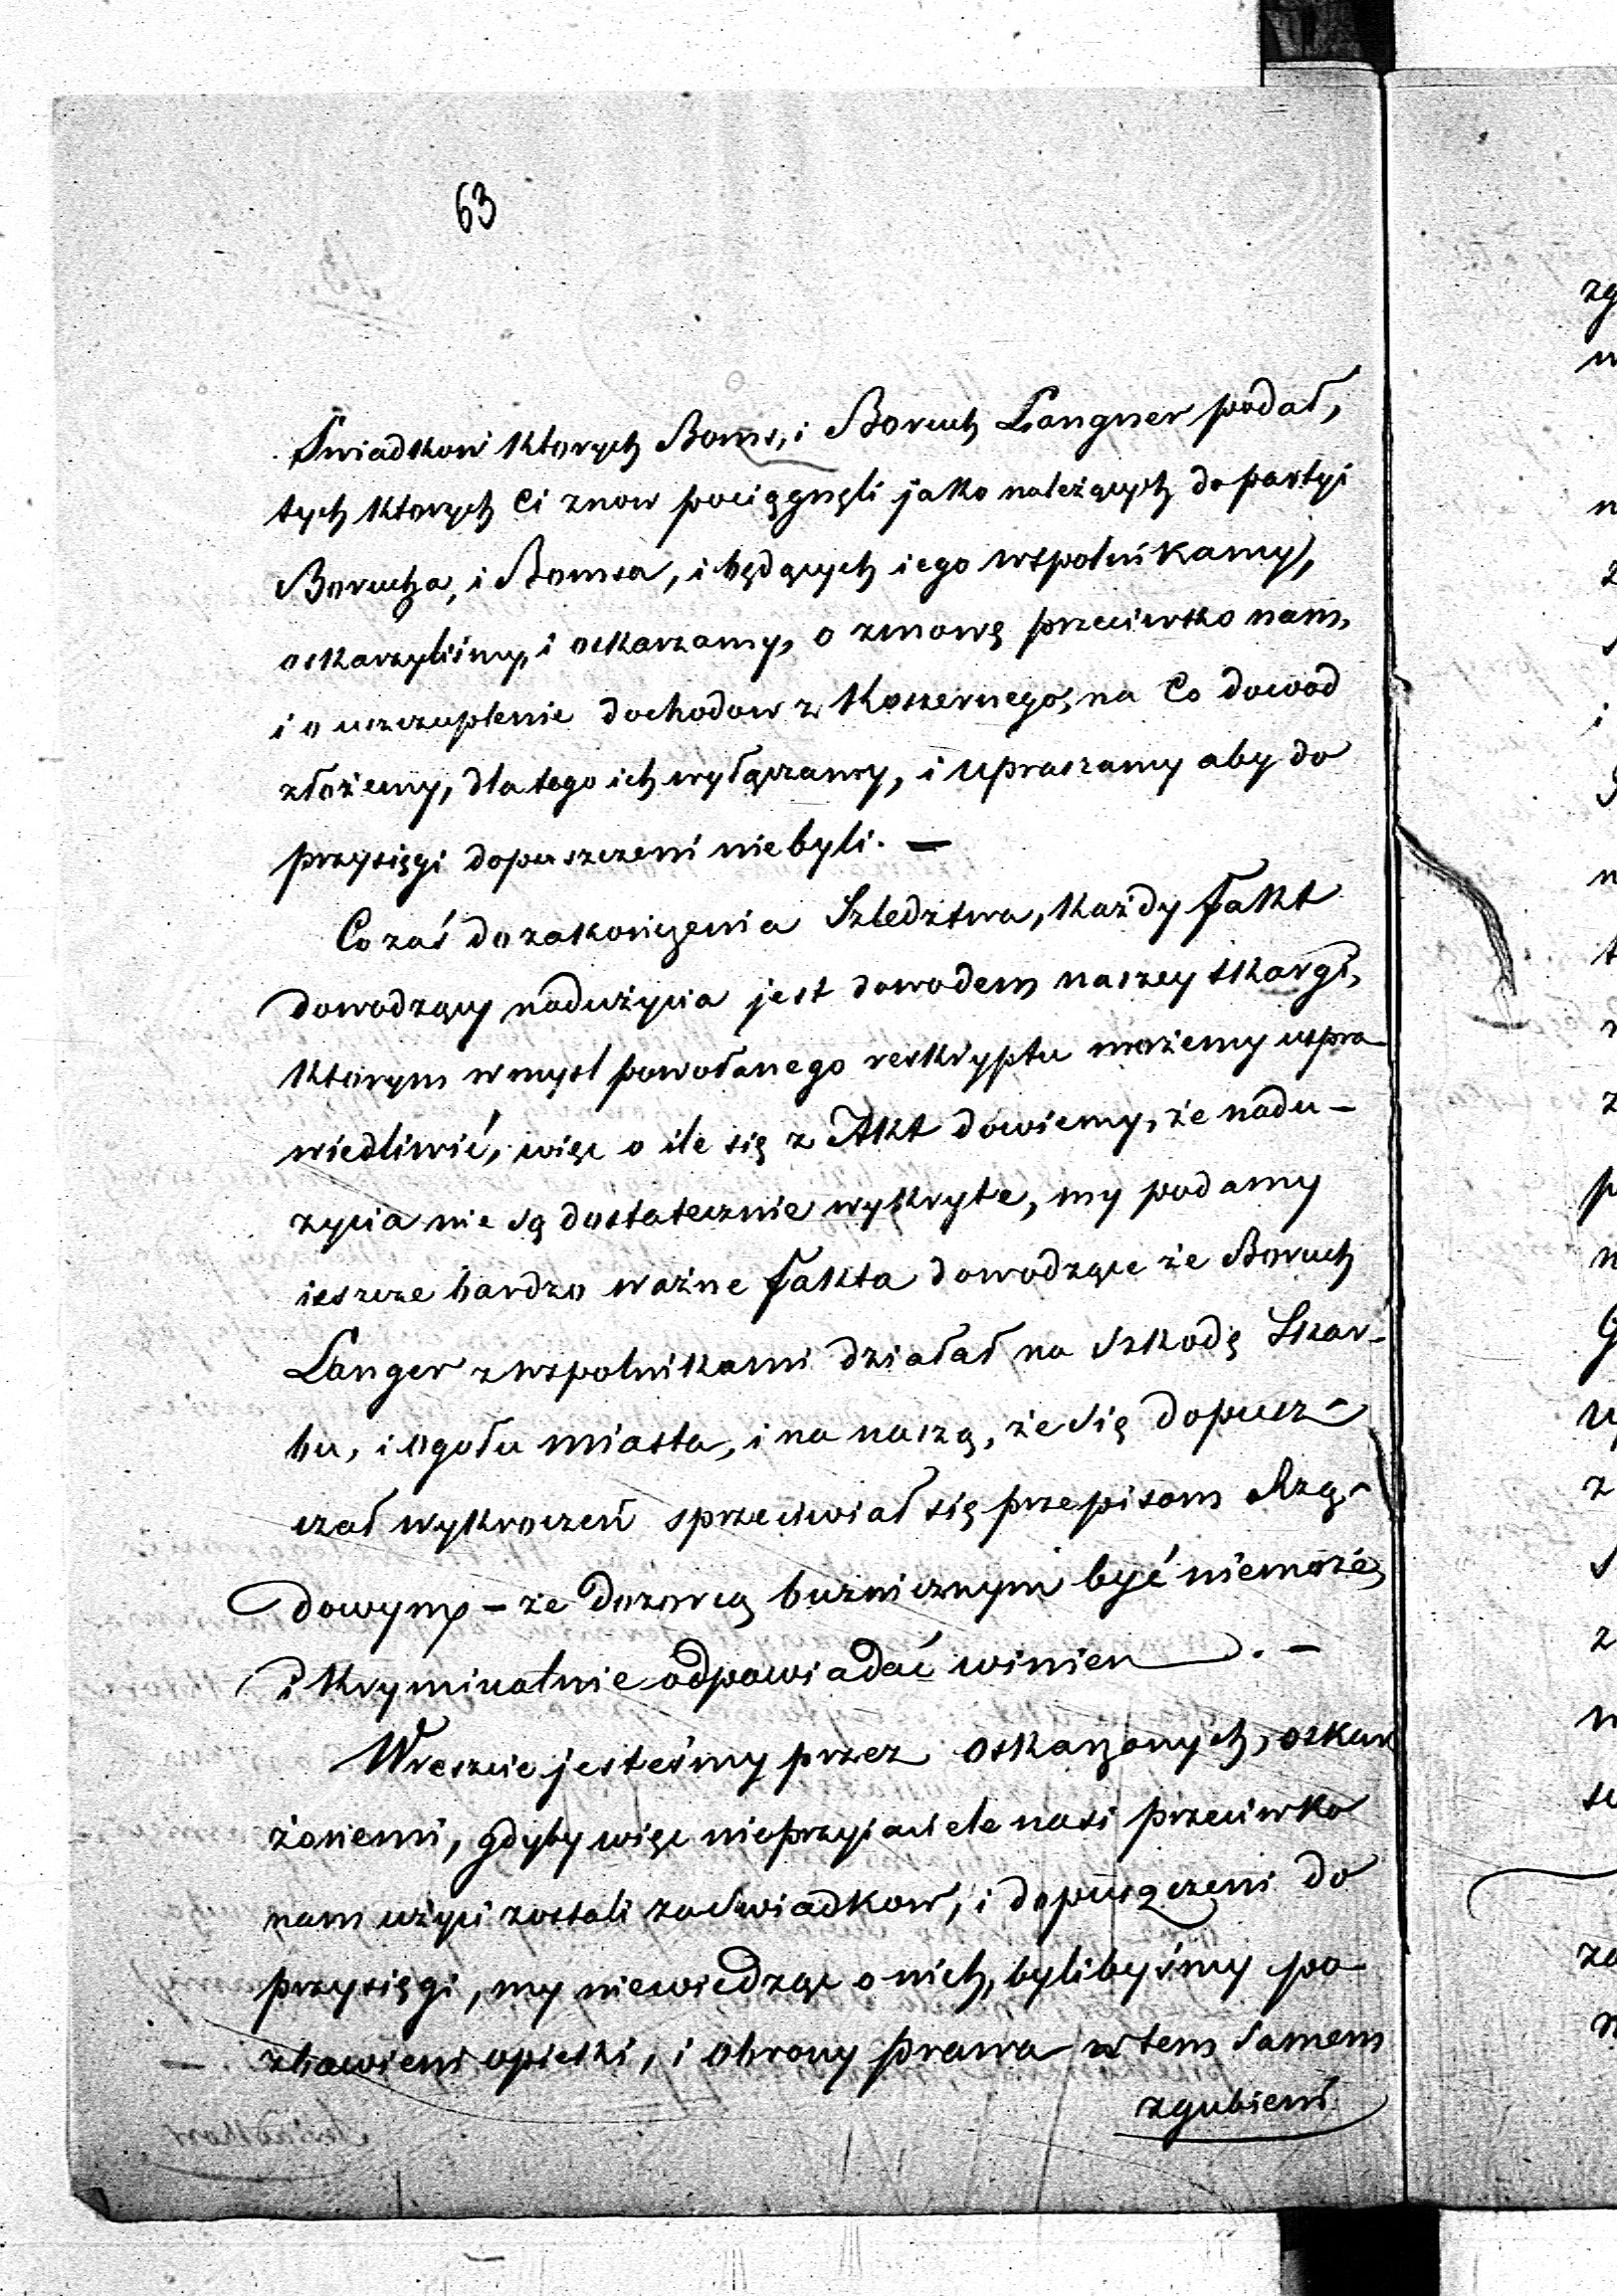 63
Swiadkow ktorych Boms, i Boruch Langner podał,
tych ktorych Ci znow pociągnęli jako należących do partyi
Borucha, i Bomsa, i będących iego wspolnikamy,
oskarzyliśmy, i oskarzamy, o zmowę przeciwko nam,
i o uszczuplenie dochodow z Koszernego, na Co dowod
złożemy, dla tego ich wyłączamy, i upraszamy aby do
przysięgi dopuszczeni niebyli. —
Co zaś do zakończenia Szledztwa, każdy fakt
dowodzący nadużycia jest dowodem naszey skargi,
ktorym w mysl powołanego reskryptu możemy uspra
wiedliwić, więc o ile się z Akt dowiemy, że nadu-
zycia nie są dostatecznie wykryte, my podamy
ieszcze bardzo ważne fakta dowodzące że Boruch
Langer z wspolnikami działał na szkodę Skar-
bu, i ogołu miasta, i na naszą, że się dopusz-
czał wykroczeń sprzeciwiał się przepisom Rzą-
dowym - że dozorcą buznicznym być niemoże,
i kryminalnie odpowiadać winien. —
Wreszcie jesteśmy przez oskarzonych, oskar
żoniemi, gdyby więc nieprzyjaciele nasi przeciwko
nam użyci zostali za swiadkow, i dopuszczeni do
przysięgi, my niewiedząc o nich, bylibyśmy po
zbawieni opieki, i obrony prawa w tem samem
zgubieni